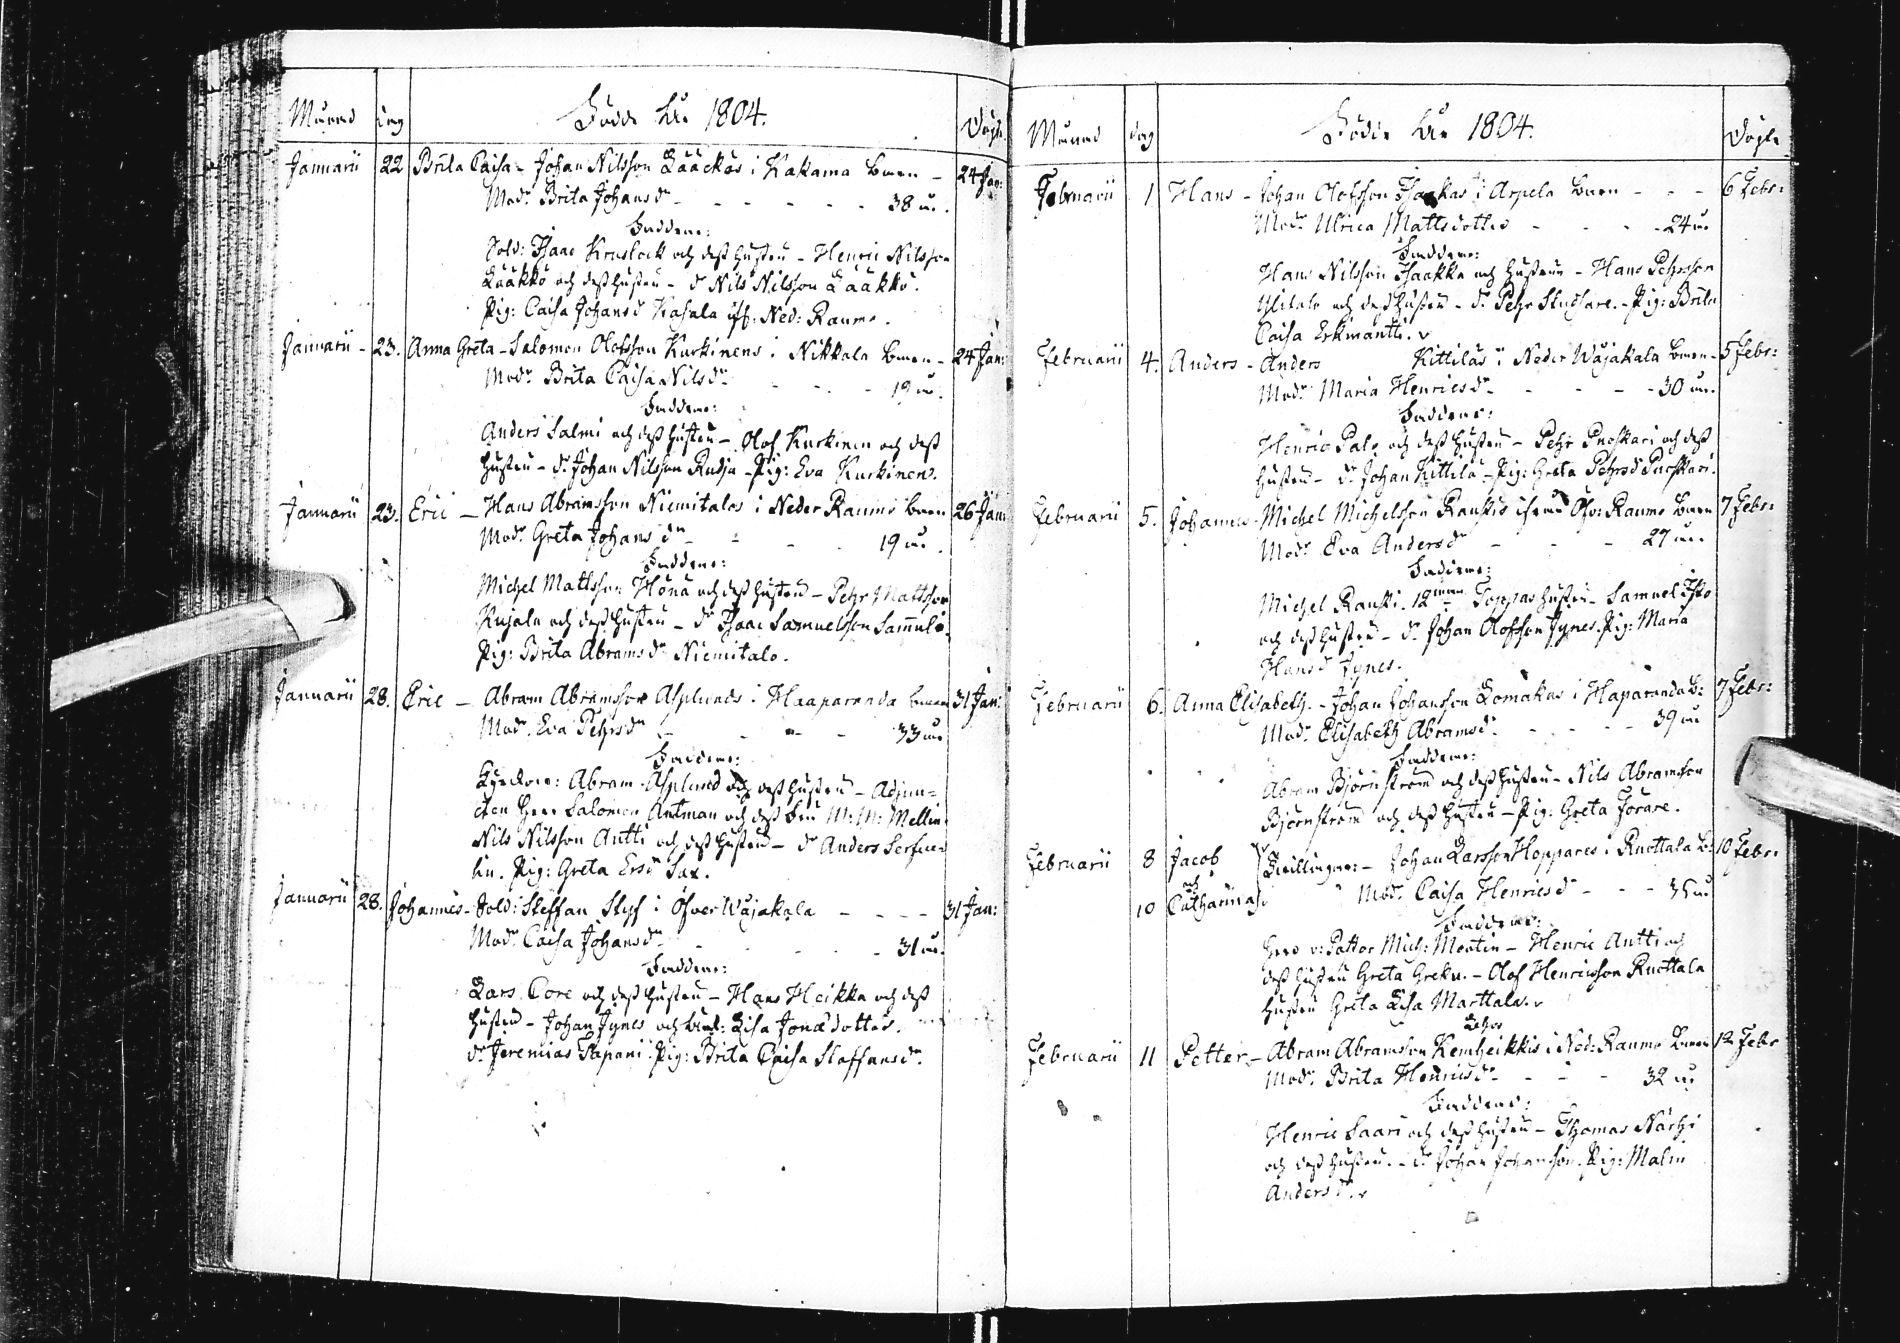 Månad Dag Födde År 1804. Döpte
Januarii 22 Brita Caisa - Johan Nilsson Lääckös i Kakama barn - 24 Jan:
Modr Brita Johansdr - - - - 38 år.
Faddrar:
Sold: Isaac Kruslock och dess hustru - Henric Nilsson
Lääkkö och dess hustru - dr Nils Nilsson Lääkkö.
Pig: Caisa Johansd Kasala ifr: Ned: Raumo.
Januarii - 23. Anna Greta - Salomon Olofsson Kurkinens i Nikkala barn - 24 Jan:
Modr Brita Caisa Nilsdr - - - 19 år.
Faddrar:
Anders Salmi och dess hustru - Olof Kurkinen och dess
hustru - dr Johan Nilsson Rudja - Pig: Eva Kurkinen.
Januarii 23. Eric - Hans Abramsson Niemitalos i Neder Raumo barn 26 Jan:
Modr Greta Johansdr - - - 19 år.
Faddrar:
Michel Mattsson Hona och dess hustru - Pehr Mattsson
Kujala och dess hustru - dr Isaac Samuelsson
Pig: Brita Abramsdr Niemitalo.
Januarii 28. Eric - Abram Abramsson Asplunds i Haaparanda barn 31 Jan:
Modr Eva Pehrsdr - - - 33 år
Faddrar:
Abram Asplund och dess hustru - Adjun-
cten Herr Salomon Antman och dess fru M: M: Mellin
Nils Nilsson Antti och dess hustru - dr Anders
Pig: Greta Ersdr Sax.
Januarii 28. Johannes - Sold: Steffan Styf i Öfver Wojakala - - - 31 Jan:
Modr Caisa Johansdr - - - 31 år.
Faddrar:
Lars Core och dess hustru - Hans Heikka och dess
hustru - Johan Jynes och Lisa Jonædotter.
dr Jeremias Tapani. Pig: Brita Caisa Staffansdr.
Månad Dag Födde År 1804. Döpte
Februarii 1 Hans - Johan Olofsson Isaakas i Arpela barn - - - 6 Febr:
Modr Ulrica Mattsdotter - - - 24 år
Faddrar:
Hans Nilsson Isaakka och hustrun - Hans Pehrsson
Ylitalo och dess hustru - dr Pehr - Pig: Brita
Caisa Erkinantti.
Februarii 4. Anders - Anders Kittiläs i Neder Wojakala barn - 5 Febr:
Modr Maria Henricsdr - - - 30 år.
Faddrar:
Henric Palo och dess hustru - Pehr Puoskari och dess
hustru - dr Johan Kittilä - Pig: Greta Pehrsd Puoskari.
Februarii 5. Johannes - Michel Michelsson Rauskis ifrån Öfv: Raumo barn 7 Febr:
Modr Eva Andersdr - - - 27 år.
Faddrar:
Michel Rauski. 12 man Toppas hustru - Samuel
och dess hustru - dr Johan Olofsson Jynes. Pig: Maria
Hansdr Jynes.
Februarii 6. Anna Elisabeth. - Johan Johansson Lomakas i Haparanda b: 7 Febr:
Modr Elisabeth Abramsdr. - - - 39 år
Faddrar:
Abram Björnström och dess hustru - Nils Abramsson
Björnström och dess hustru - Pig: Greta Forare.
Februarii 8 Jacob Tvillingar: - Johan Larsson Hoppares i Ruottala b: 10 Febr:
och
10 Catharina Modr Caisa Henricsdr - - - 35 år
Faddrar:
Herr v: Pastor Mich: Montin - Henric Antti och
dess hustru Greta Greku. - Olof Henricsson Ruottala
hustru Greta Lisa Marttala.
Februarii 11 Petter - Abram Abramsson Kemheikkis i Ned: Raumo barn 12 Febr
Modr Brita Henricsdr - - - 32 år
Faddrar:
Henric Saari och dess hustru - Thomas Närhi
och dess hustru. - dr Johan Johansson. Pig: Malin
Andersdr.